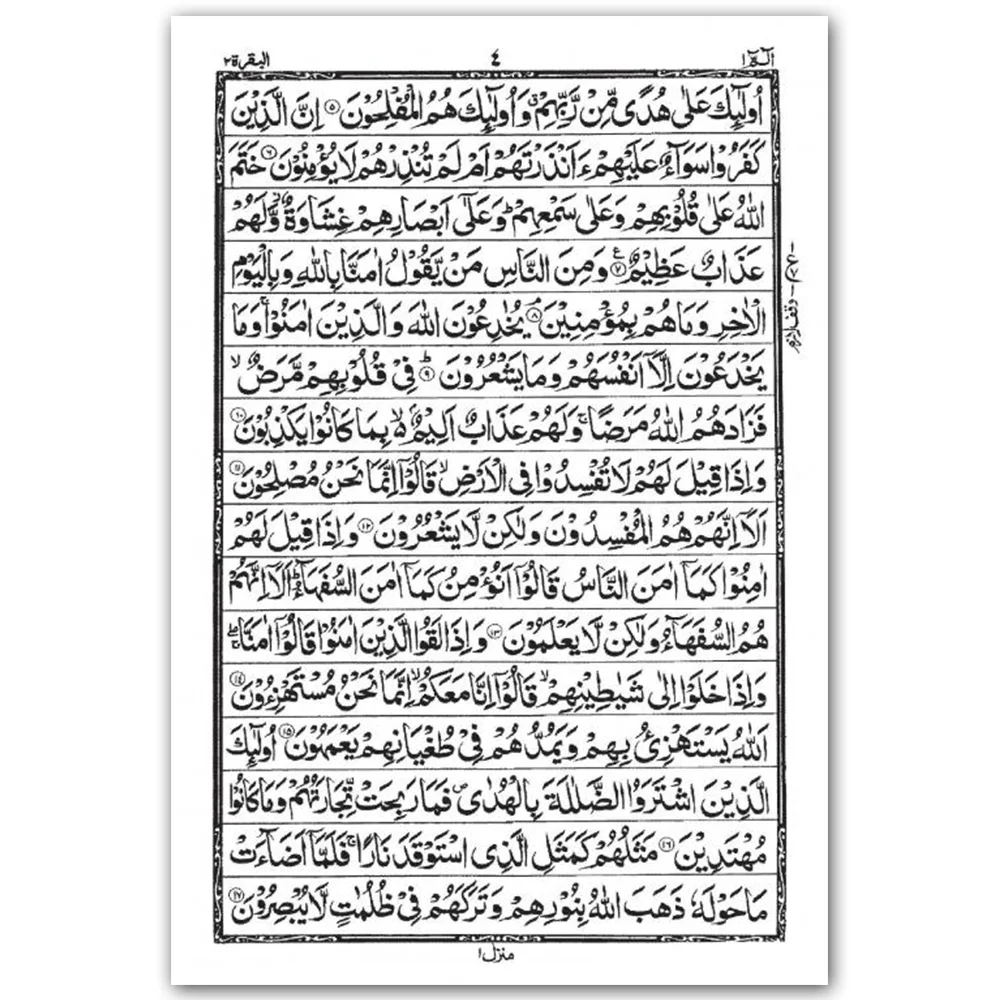 الٓمّٓ ١
٤
البقرة ٢
اُولٰٓئِكَ عَلٰى هُدًى مِّنْ رَّبِّهِمْ ۗ وَاُولٰٓئِكَ هُمُ الْمُفْلِحُوْنَ ﴿٥﴾ اِنَّ الَّذِيْنَ
كَفَرُوْا سَوَآءٌ عَلَيْهِمْ ءَاَنْذَرْتَهُمْ اَمْ لَمْ تُنْذِرْهُمْ لَا يُؤْمِنُوْنَ ﴿٦﴾ خَتَمَ
اللّٰهُ عَلٰى قُلُوْبِهِمْ وَعَلٰى سَمْعِهِمْ ؕ وَعَلٰٓى اَبْصَارِهِمْ غِشَاوَةٌ ؗ وَّلَهُمْ
عَذَابٌ عَظِيْمٌ ﴿٧﴾ ع وَمِنَ النَّاسِ مَنْ يَّقُوْلُ اٰمَنَّا بِاللّٰهِ وَبِالْيَوْمِ
الْاٰخِرِ وَمَا هُمْ بِمُؤْمِنِيْنَ ﴿٨﴾ ۘ يُخٰدِعُوْنَ اللّٰهَ وَالَّذِيْنَ اٰمَنُوْا ۚ وَمَا
يَخْدَعُوْنَ اِلَّآ اَنْفُسَهُمْ وَمَا يَشْعُرُوْنَ ﴿٩﴾ ؕ فِيْ قُلُوْبِهِمْ مَّرَضٌ ۙ
فَزَادَهُمُ اللّٰهُ مَرَضًا ۚ وَلَهُمْ عَذَابٌ اَلِيْمٌ ۙ۬ بِمَا كَانُوْا يَكْذِبُوْنَ ﴿١٠﴾
وَاِذَا قِيْلَ لَهُمْ لَا تُفْسِدُوْا فِى الْاَرْضِ ۙ قَالُوْٓا اِنَّمَا نَحْنُ مُصْلِحُوْنَ ﴿١١﴾
اَلَآ اِنَّهُمْ هُمُ الْمُفْسِدُوْنَ وَلٰكِنْ لَّا يَشْعُرُوْنَ ﴿١٢﴾ وَاِذَا قِيْلَ لَهُمْ
اٰمِنُوْا كَمَآ اٰمَنَ النَّاسُ قَالُوْٓا اَنُؤْمِنُ كَمَآ اٰمَنَ السُّفَهَآءُ ؕ اَلَآ اِنَّهُمْ
هُمُ السُّفَهَآءُ وَلٰكِنْ لَّا يَعْلَمُوْنَ ﴿١٣﴾ وَاِذَا لَقُوا الَّذِيْنَ اٰمَنُوْا قَالُوْٓا اٰمَنَّا ۖۚ
وَاِذَا خَلَوْا اِلٰى شَيٰطِيْنِهِمْ ۙ قَالُوْٓا اِنَّا مَعَكُمْ ۙ اِنَّمَا نَحْنُ مُسْتَهْزِءُوْنَ ﴿١٤﴾
اَللّٰهُ يَسْتَهْزِئُ بِهِمْ وَيَمُدُّهُمْ فِيْ طُغْيَانِهِمْ يَعْمَهُوْنَ ﴿١٥﴾ اُولٰٓئِكَ
الَّذِيْنَ اشْتَرَوُا الضَّلٰلَةَ بِالْهُدٰى ۪ فَمَا رَبِحَتْ تِّجَارَتُهُمْ وَمَا كَانُوْا
مُهْتَدِيْنَ ﴿١٦﴾ مَثَلُهُمْ كَمَثَلِ الَّذِى اسْتَوْقَدَ نَارًا ۚ فَلَمَّآ اَضَآءَتْ
مَا حَوْلَهٗ ذَهَبَ اللّٰهُ بِنُوْرِهِمْ وَتَرَكَهُمْ فِيْ ظُلُمٰتٍ لَّا يُبْصِرُوْنَ ﴿١٧﴾
وقف لازم
منزل ١